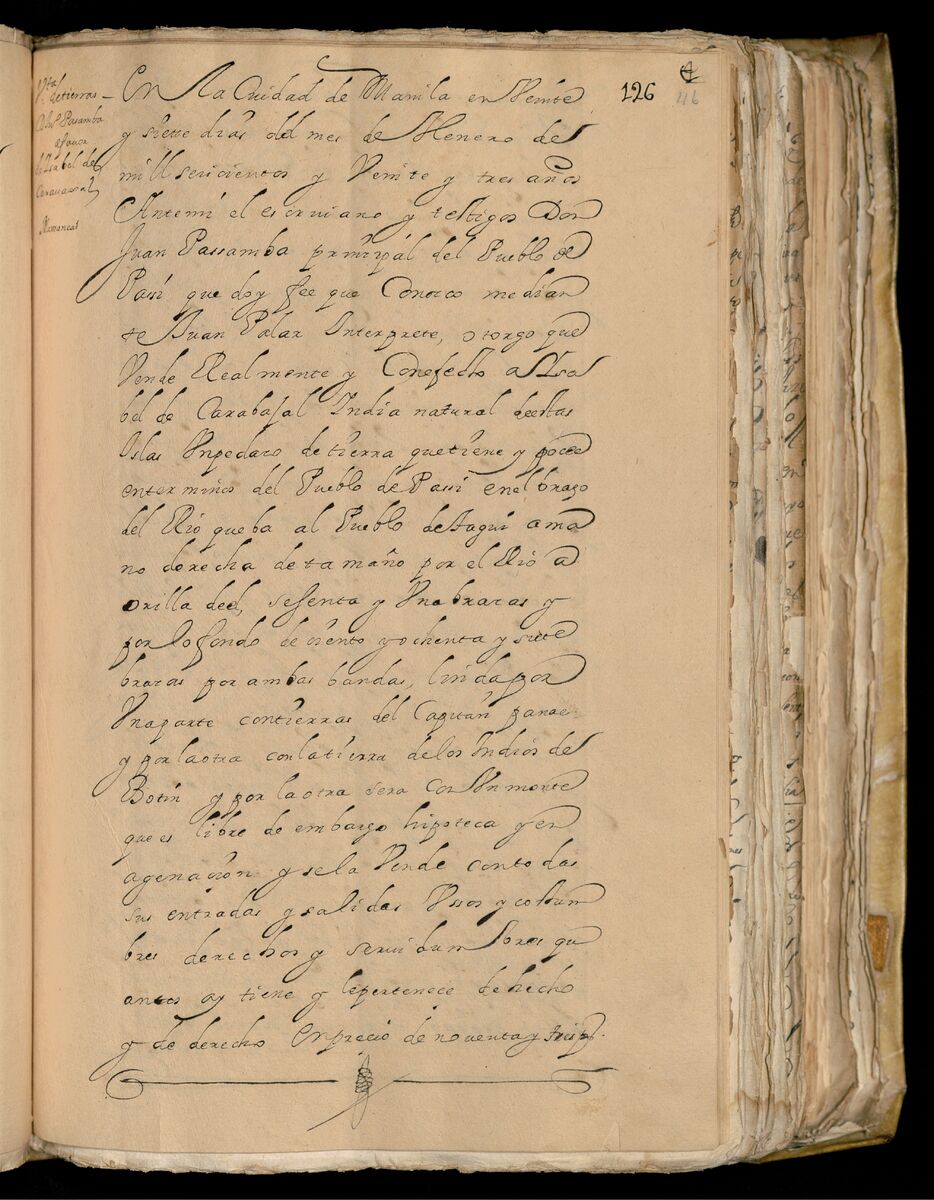 de tierras
Ju.º Pasamba
a fauor
de Isabel de
Carauaxal
126
46
En La Ciudad de Manila en Veinte
y siete dias del mes de Henero de
mill seiscientos y Veinte y tres años
Antemi el escriuano y testigos Don
Juan Passamba prinçipal del Pueblo de
Pasi que doy fee que Conozco median
te Juan Palar Interprete, otorgo que
Vende Realmente y Conefecto a Isa
bel de Carabajal India natural destas
Islas Vnpedaço de tierra quetiene y posee
enterminos del Pueblo de Passi enelbrazo
del Rio queba al Pueblo deTagui ama
no derecha detamaño por el Rio a
orilla del, sesenta y Vnabraças y
por lofondo de ciento yochenta y siete
braças por ambas bandas, lindapor
Vnaparte contierras del Capitan panae
y porlaotra conlatierra delos Indios de
Botin y por laotra sera con Vn monte
que es libre de embargo hipoteca y en
agenacion y sela Vende contodas
sus entradas y salidas Vssos y costum
bres derechos y seruidumbres qu
antos ay tiene y lepertenece dehecho
y de derecho Enprecio denoventay treis p.